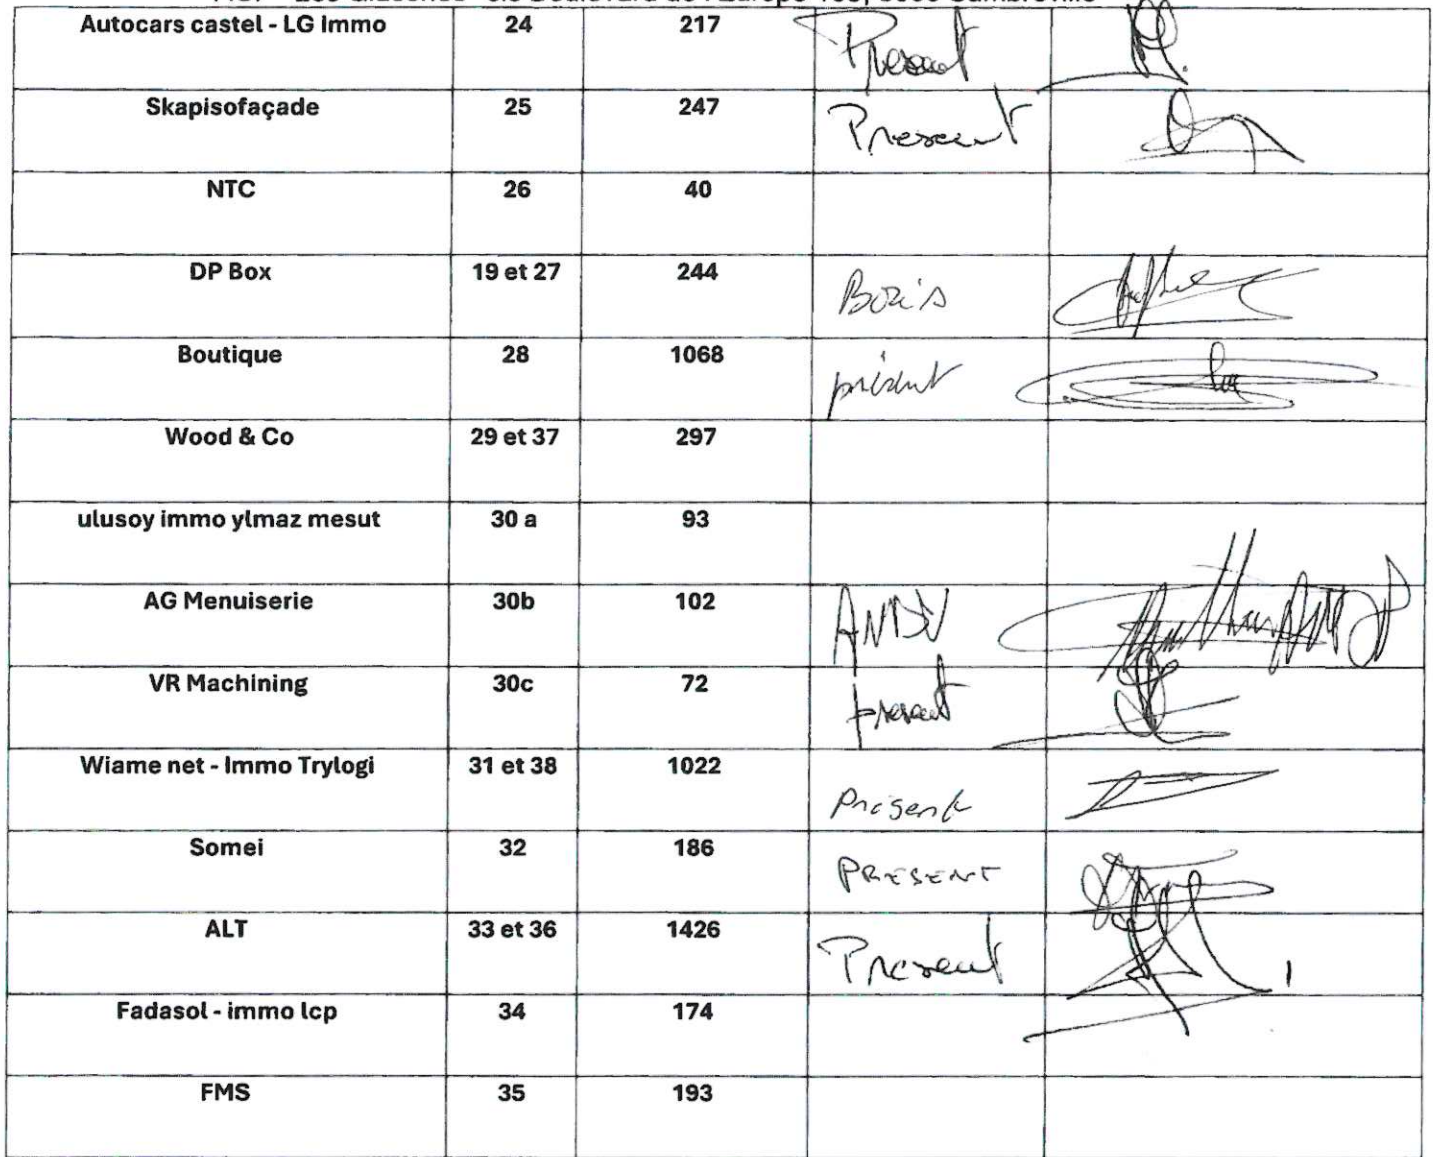 Autocars castel - LG Immo 24 217 Present
Skapisofaçade 25 247 Present
NTC 26 40
DP Box 19 et 27 244 Boris
Boutique 28 1068 présent
Wood & Co 29 et 37 297
ulusoy immo ylmaz mesut 30 a 93
AG Menuiserie 30b 102
VR Machining 30c 72 present
Wiame net - Immo Trylogi 31 et 38 1022 Présent
Somei 32 186 PRESENT
ALT 33 et 36 1426 Present
Fadasol - immo lcp 34 174
FMS 35 193